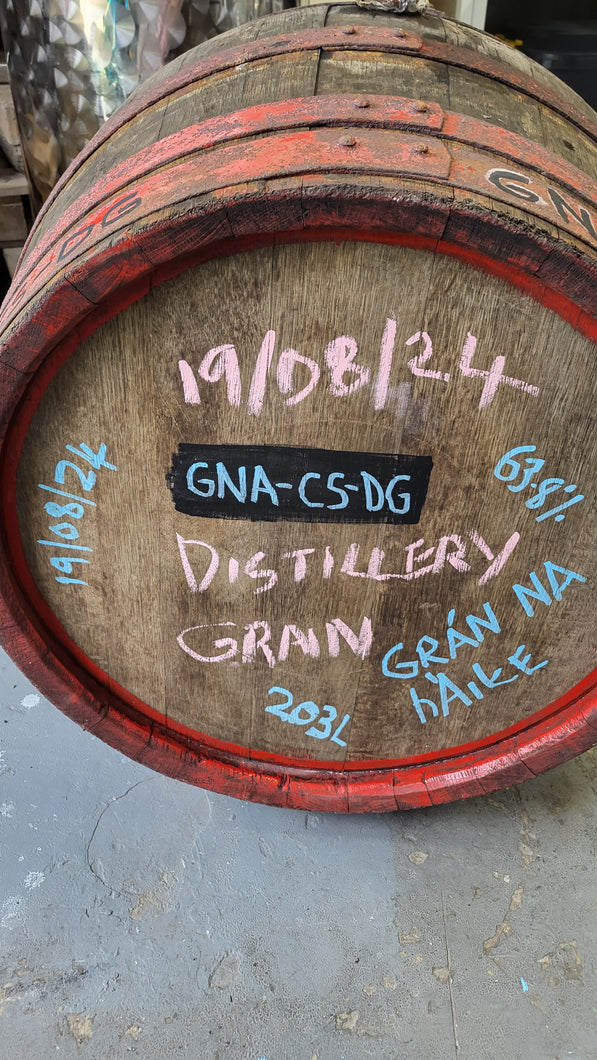 S-DG
GN
19/08/24
19/08/24
GNA-CS-DG
63.8%
DISTILLERY
GRAIN
GRÁN NA
hÁILE
203L